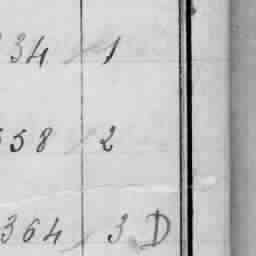 34 1
58 2
364 3 D